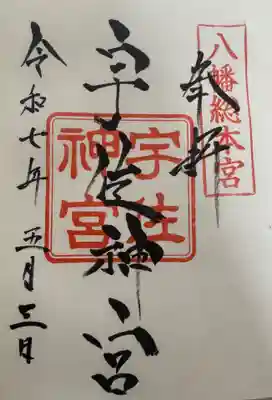 八幡総本宮
奉拝
宇佐神宮
宇佐
神宮
令和七年 五月三日